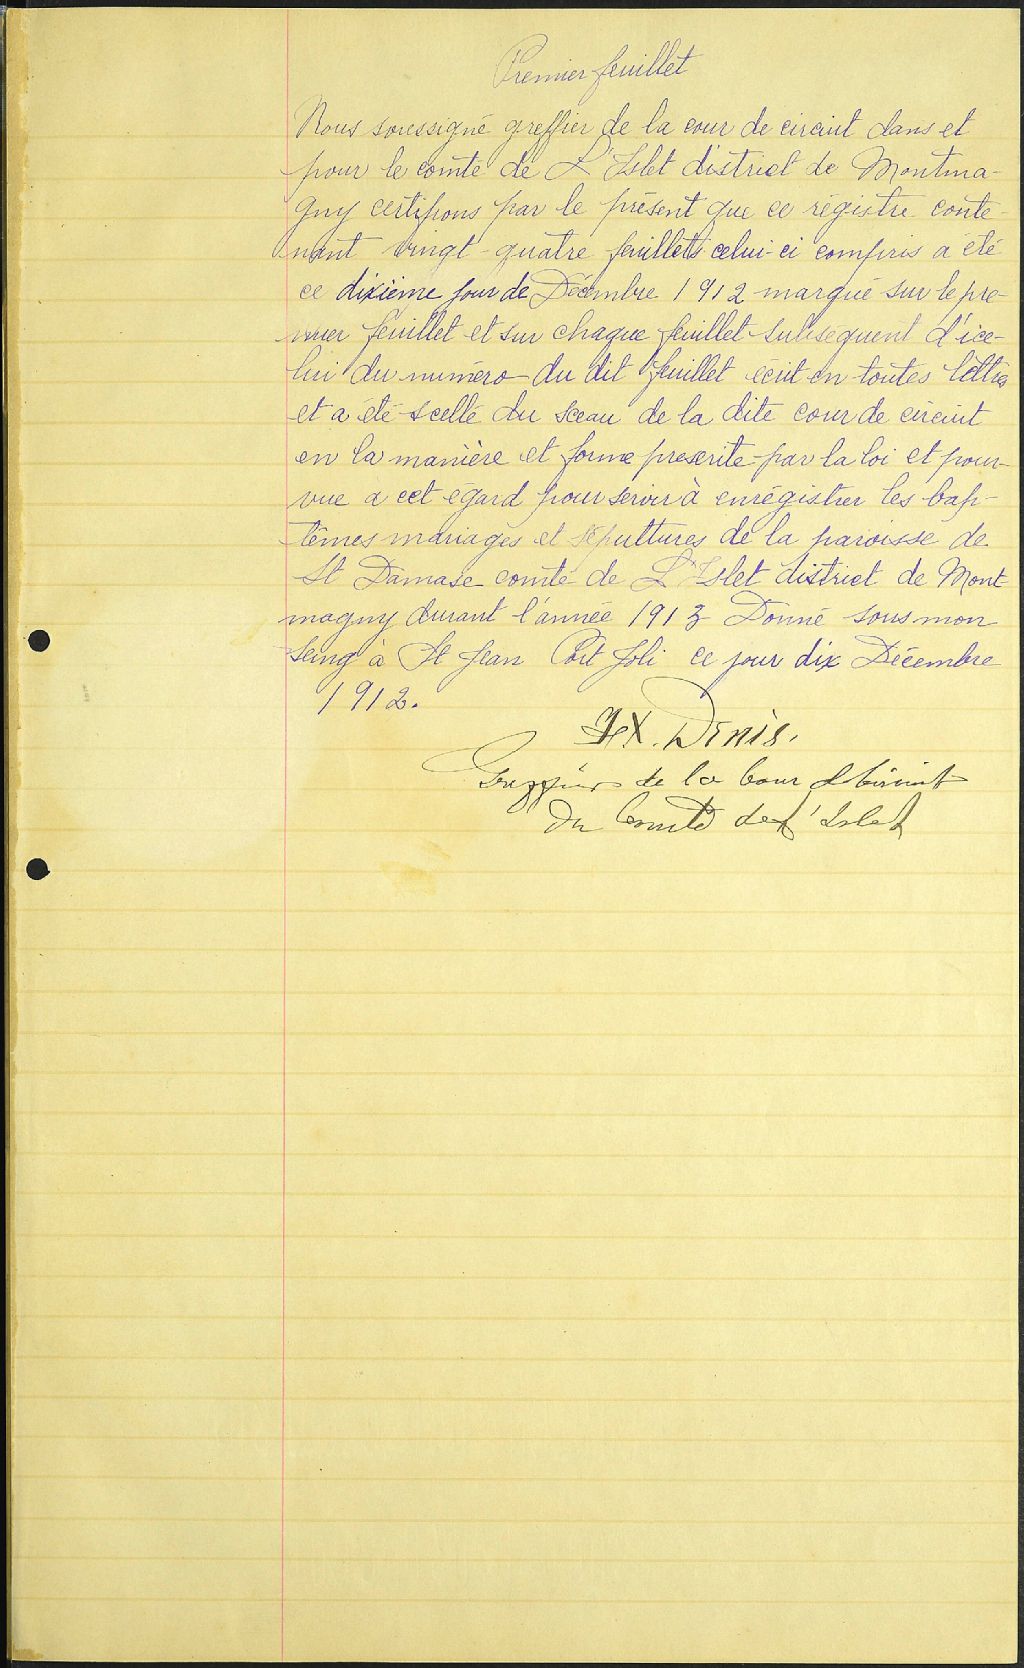 Premier feuillet
Nous soussigné greffier de la cour de circuit dans et
pour le comté de L'Islet district de Montma-
gny certifions par le présent que ce régistre conte-
nant vingt-quatre feuillets celui-ci compris a été
ce dixième jour de Décembre 1912 marqué sur le pre-
mier feuillet et sur chaque feuillet subséquent d'ice-
lui du numéro du dit feuillet écrit en toutes lettres
et a été scellé du sceau de la dite cour de circuit
en la manière et forme prescrite par la loi et pour-
vue a cet égard pour servir à enrégistrer les bap-
têmes mariages et sépultures de la paroisse de
St Damase comté de L'Islet district de Mont
magny durant l'année 1913 Donné sous mon
seing à St Jean Port Joli ce jour dix Décembre
1912.
FX. Denis.
Greffier de la Cour de Circuit
du Comté de L'Islet